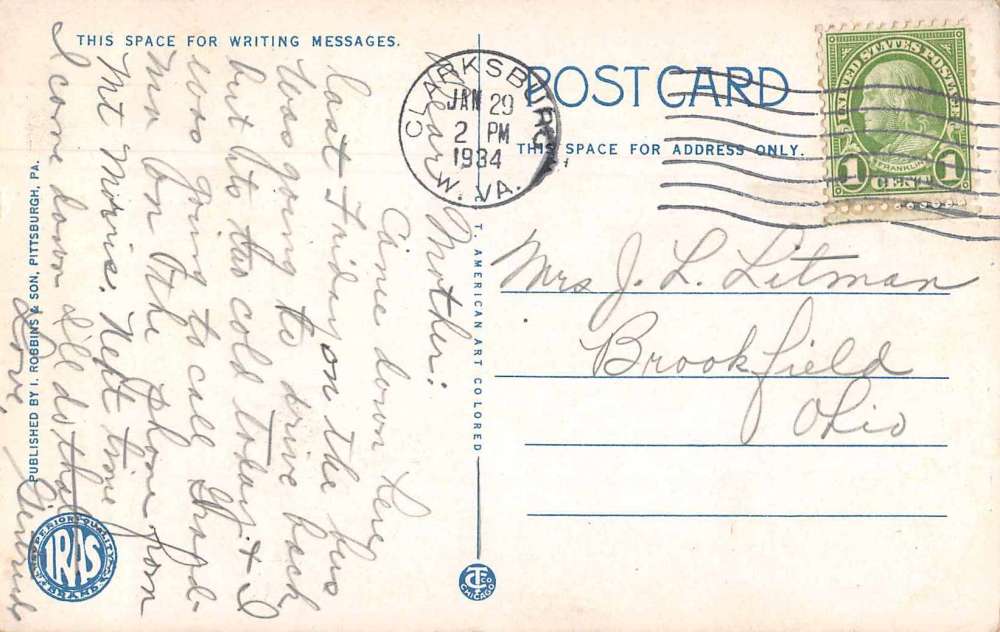 THIS SPACE FOR WRITING MESSAGES.
POST CARD
THIS SPACE FOR ADDRESS ONLY.
CLARKSBURG
JAN 29
2 PM
1934
W. VA.
UNITED STATES POSTAGE
FRANKLIN
1 CENT 1
Dear Mother:
Came down here
last Friday on the bus
Was going to drive back
but its too cold today. & I
was going to call Grand-
ma on the phone from
Mt Morris. Next time
I come down I'll do that
Love,
Mrs J. L. Litman
Brookfield
Ohio
PUBLISHED BY I. ROBBINS & SON, PITTSBURGH, PA.
C. T. AMERICAN ART COLORED
SUPERIOR QUALITY
IRAS
BRAND
CT CO
CHICAGO